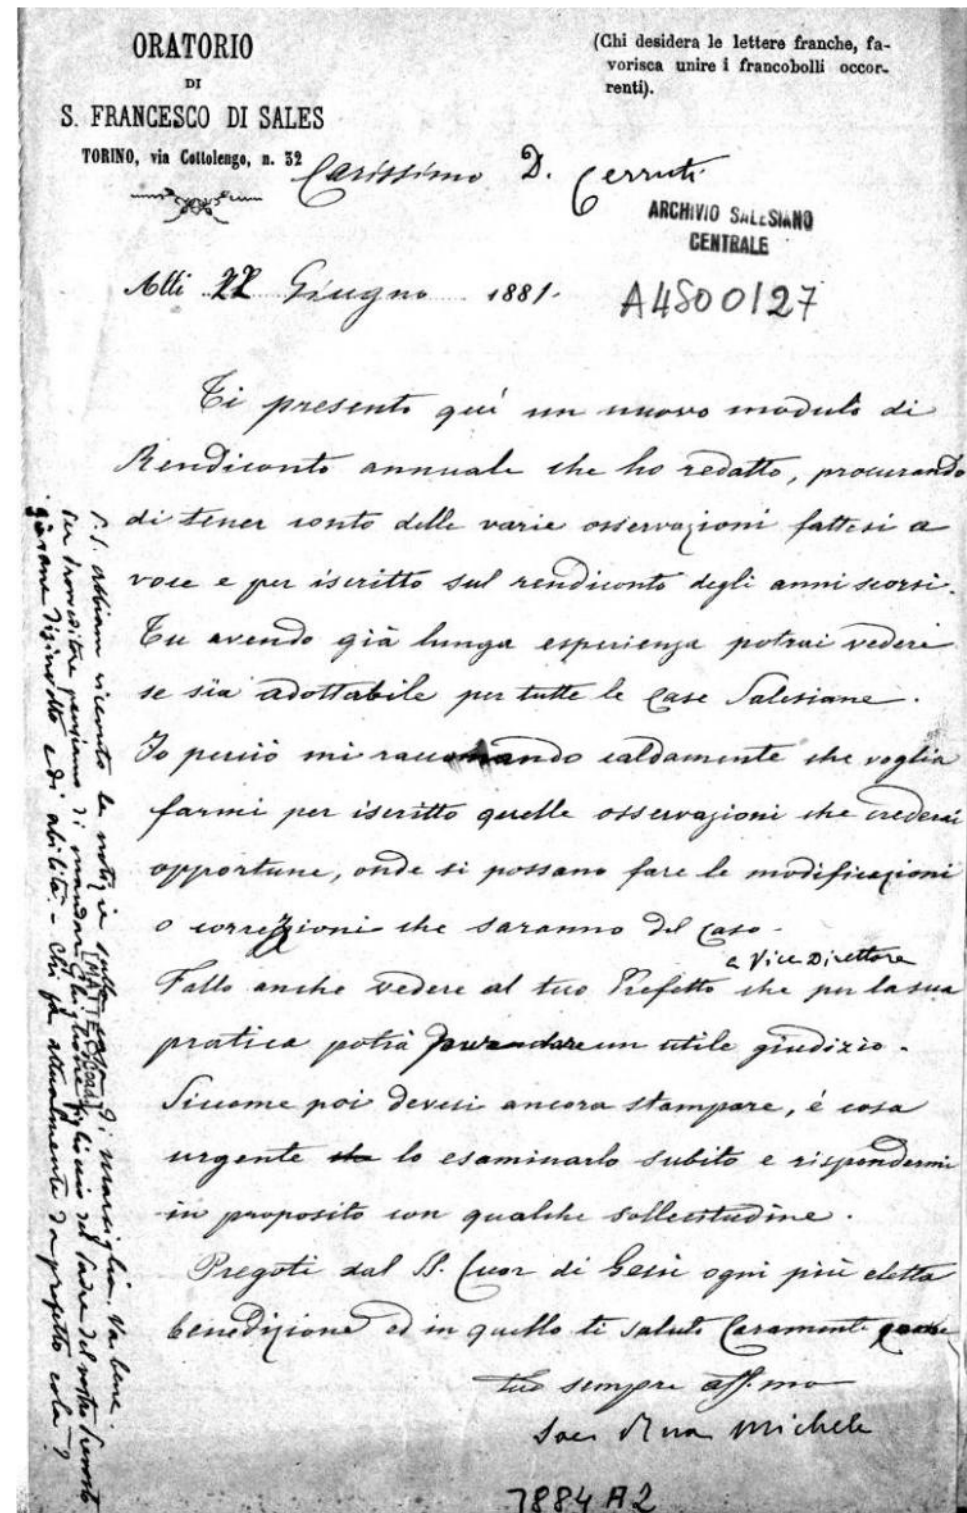 ORATORIO
DI
S. FRANCESCO DI SALES
TORINO, via Cottolengo, n. 32
(Chi desidera le lettere franche, fa-
vorisca unire i francobolli occor-
renti).
Carissimo D. Cerruti
ARCHIVIO SALESIANO
CENTRALE
A4500127
Alli 22 Giugno 1881.
Ti presento quì un nuovo modulo di
Rendiconto annuale che ho redatto, procurando
di tener conto delle varie osservazioni fattesi a
voce e per iscritto sul rendiconto degli anni scorsi.
Tu avendo già lunga esperienza potrai vedere
se sia adottabile per tutte le Case Salesiane.
Io perciò mi raccomando caldamente che voglia
farmi per iscritto quelle osservazioni che crederai
opportune, onde si possano fare le modificazioni
o correzzioni che saranno del caso.
e Vice Direttore
Fallo anche vedere al tuo Prefetto che per la sua
pratica potrà dare un utile giudizio.
Siccome poi devesi ancora stampare, è cosa
urgente lo esaminarlo subito e rispondermi
in proposito con qualche sollecitudine.
Pregoti dal S. Cuor di Gesù ogni più eletta
benedizione ed in quello ti saluto Caramente
tuo sempre aff.mo
Sac. Rua Michele
7884 A2
P.S. abbiam ricevuto le notizie sulla casa di Marsiglia. Va bene.
Per provveditore pensiamo di mandargli figliuccio del padre del nostro Prevosto
giovane disinvolto e di abilità. - Chi fa attualmente da prefetto colà?